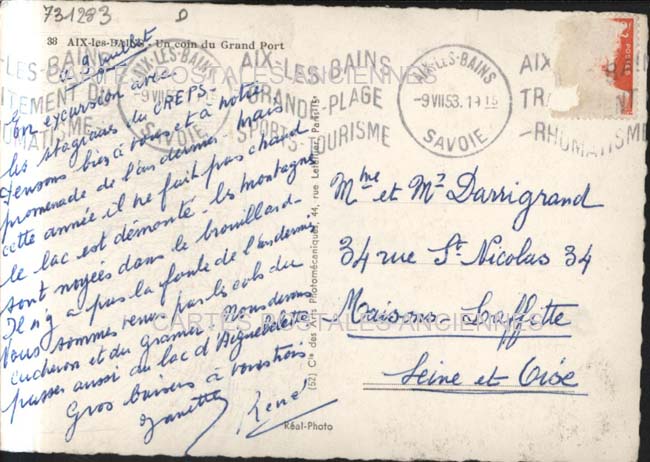 731283 D
38 AIX-les-BAINS - Un coin du Grand Port
CARTES POSTALES ANCIENNES
AIX-LES-BAINS
-9 VII 53
SAVOIE
AIX-LES-BAINS
GRANDE-PLAGE
SPORTS-TOURISME
AIX-LES-BAINS
-9 VII 53. 1 15
SAVOIE
AIX
TRA
-RHUMATISME
le 9 juillet
En excursion avec
les stagiaires du CREPS -
Pensons bien à vous et à notre
promenade de l'an dernier mais
cette année il ne fait pas chaud
le lac est démonté - les montagnes
sont noyées dans le brouillard -
Il n'y a pas la foule de l'an dernier
Nous sommes venus par les cols du
cucheron et du granier. Nous devons
passer aussi du lac d'Aiguebelette
Gros baisers à vous trois
Janette René
Mme et Mr Darrigrand
34 rue St Nicolas 34
Maisons-Laffitte
Seine et Oise
CARTES POSTALES ANCIENNES
(52) Cie des Arts Photomécaniques, 44, rue Letellier, Paris-15e
Réal-Photo